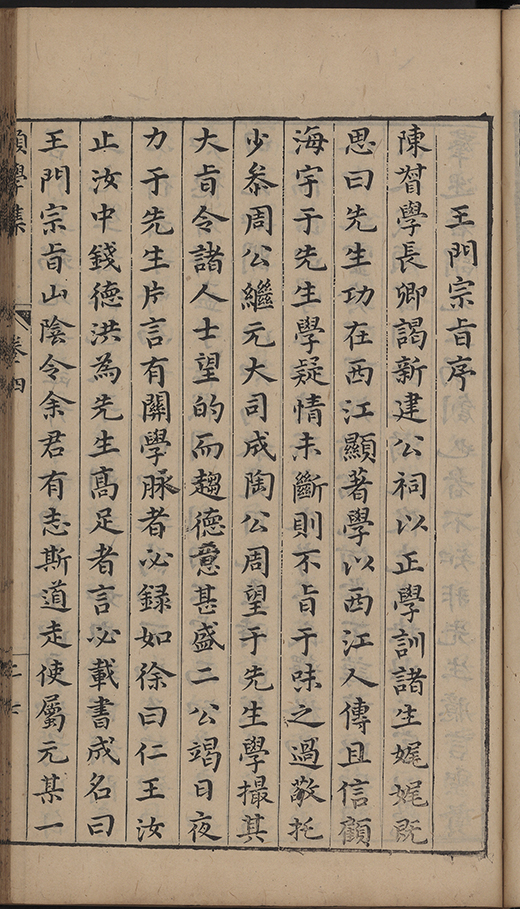 王門宗旨序
陳督學長卿謁新建公祠以正學訓諸生娓娓既
思曰先生功在西江顯著學以西江人傳且信顧
海宇于先生學疑情未斷則不旨于味之過敬托
少叅周公繼元大司成陶公周望于先生學撮其
大旨令諸人士望的而趨德意甚盛二公竭日夜
力于先生片言有關學脉者必録如徐曰仁王汝
止汝中錢德洪為先生髙足者言必載書成名曰
王門宗旨山陰令余君有志斯道走使屬元某一
願學集
卷四
七